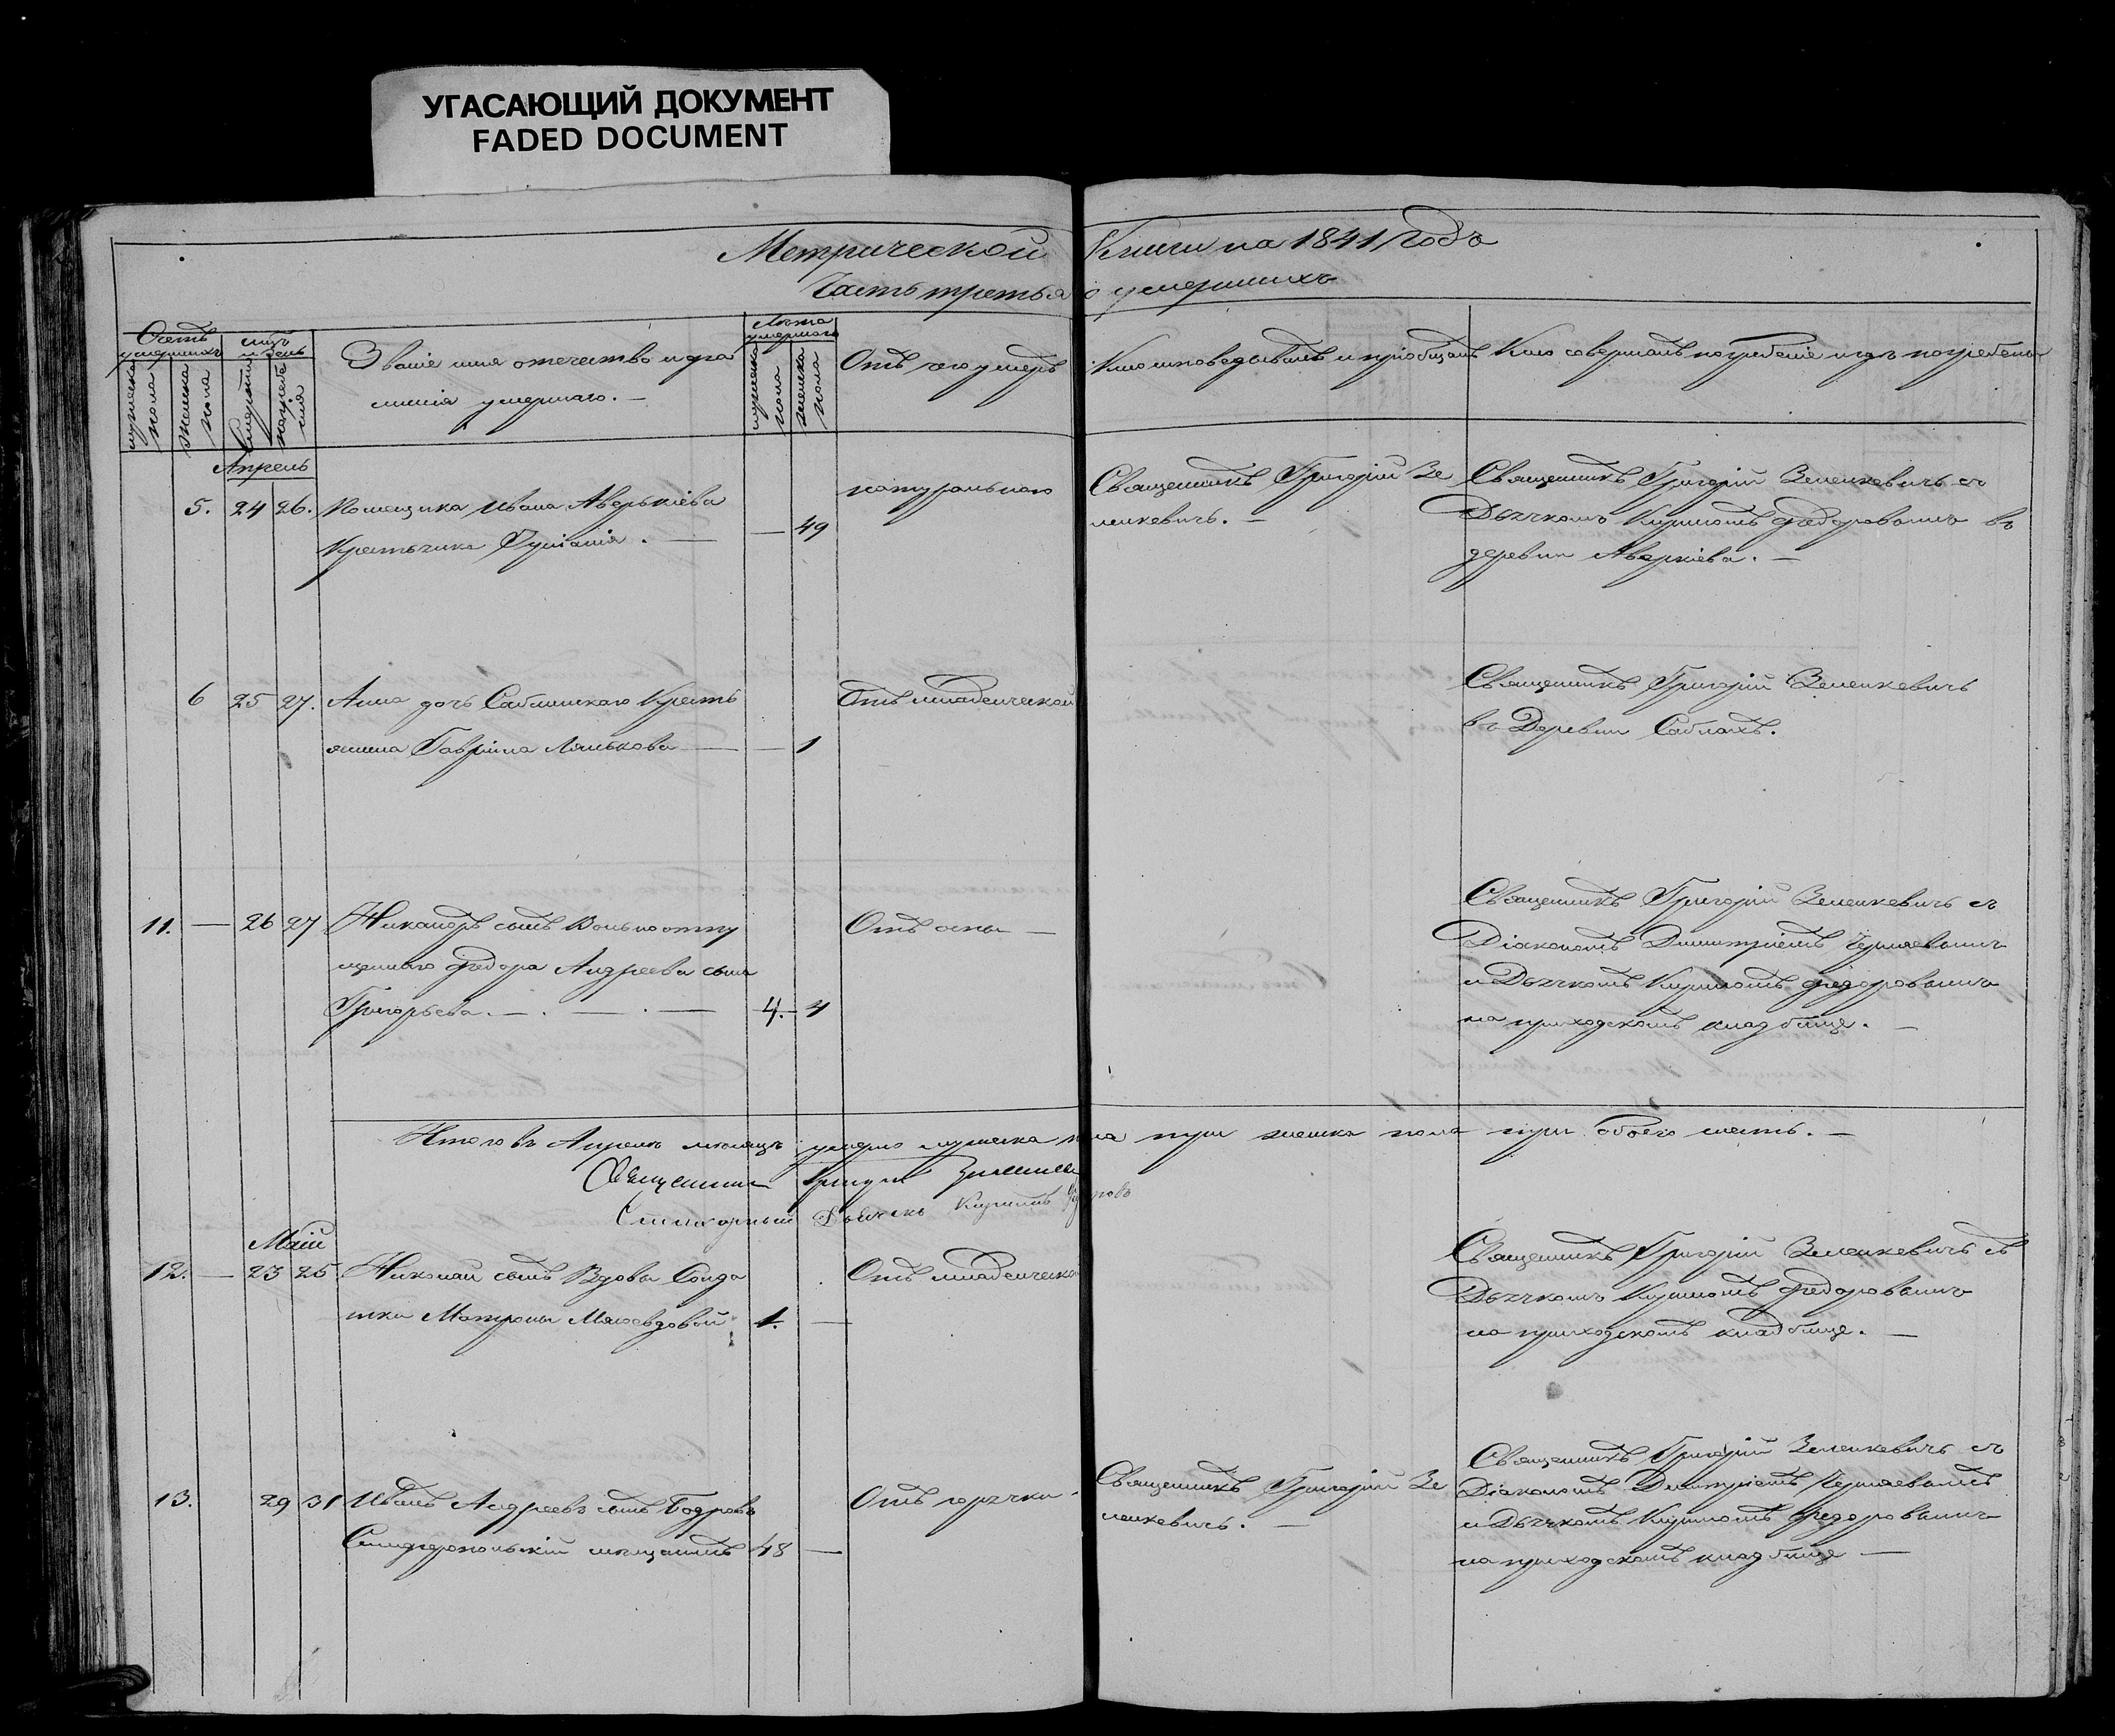 УГАСАЮЩИЙ ДОКУМЕНТ
FADED DOCUMENT
Метрической Книги на 1841 Годъ
Часть третья о умершихъ
Счетъ умершихъ
мужеска пола
женска пола
мцъ и день
смерти
погребения
Званіе имя отечество и фа
милія умершаго. —
Лѣта умершаго
мужеска пола
женска пола
Отъ чего умеръ
Кто исповедывалъ и пріобщалъ
Кто совершалъ погребеніе и гдѣ погребены
Апрель
5. 24 26. Помещика Ивана Аверькіева
Крестьянка — 49
натуральною
Священникъ Григорій Зе
ленкевичъ. —
Священникъ Григорій Зеленкевичъ съ
Дьячкомъ Кириломъ Федоровымъ въ
деревни Аверкіева. —
6 25 27. Анна дочь Саблинскаго Кресть
янина Гавріила — 1
Отъ младенческой
Священникъ Григорій Зеленкевичъ
въ Деревни Саблахъ.
11. — 26 27 Никаноръ сынъ Вольноотпу
щеннаго Федора Андреева сына
Григорьева. — 4. —
Отъ оспы —
Священникъ Григорій Зеленкевичъ съ
Діакономъ Димитріемъ
и Дьячкомъ Кириломъ Федоровымъ
на приходскомъ кладбище. —
Итого въ Апреле месяце умерло мужеска пола три женска пола три обоего шесть. —
Священникъ Григорій
Стихарный Дьячекъ Кирилъ Федоровъ
Май
12. — 23 25 Николай сынъ Вдовы Солда
тки Матроны 1. —
Отъ младенческой
Священникъ Григорій Зеленкевичъ съ
Дьячкомъ Кириломъ Федоровымъ
на приходскомъ кладбище. —
13. 29 31 Иванъ Андреевъ сынъ Бодровъ
Симферопольскій мещанинъ 48 —
Отъ горячки
Священникъ Григорій Зе
ленкевичъ. —
Священникъ Григорій Зеленкевичъ съ
Діакономъ Димитріемъ
и Дьячкомъ Кириломъ Федоровымъ
на приходскомъ кладбище —